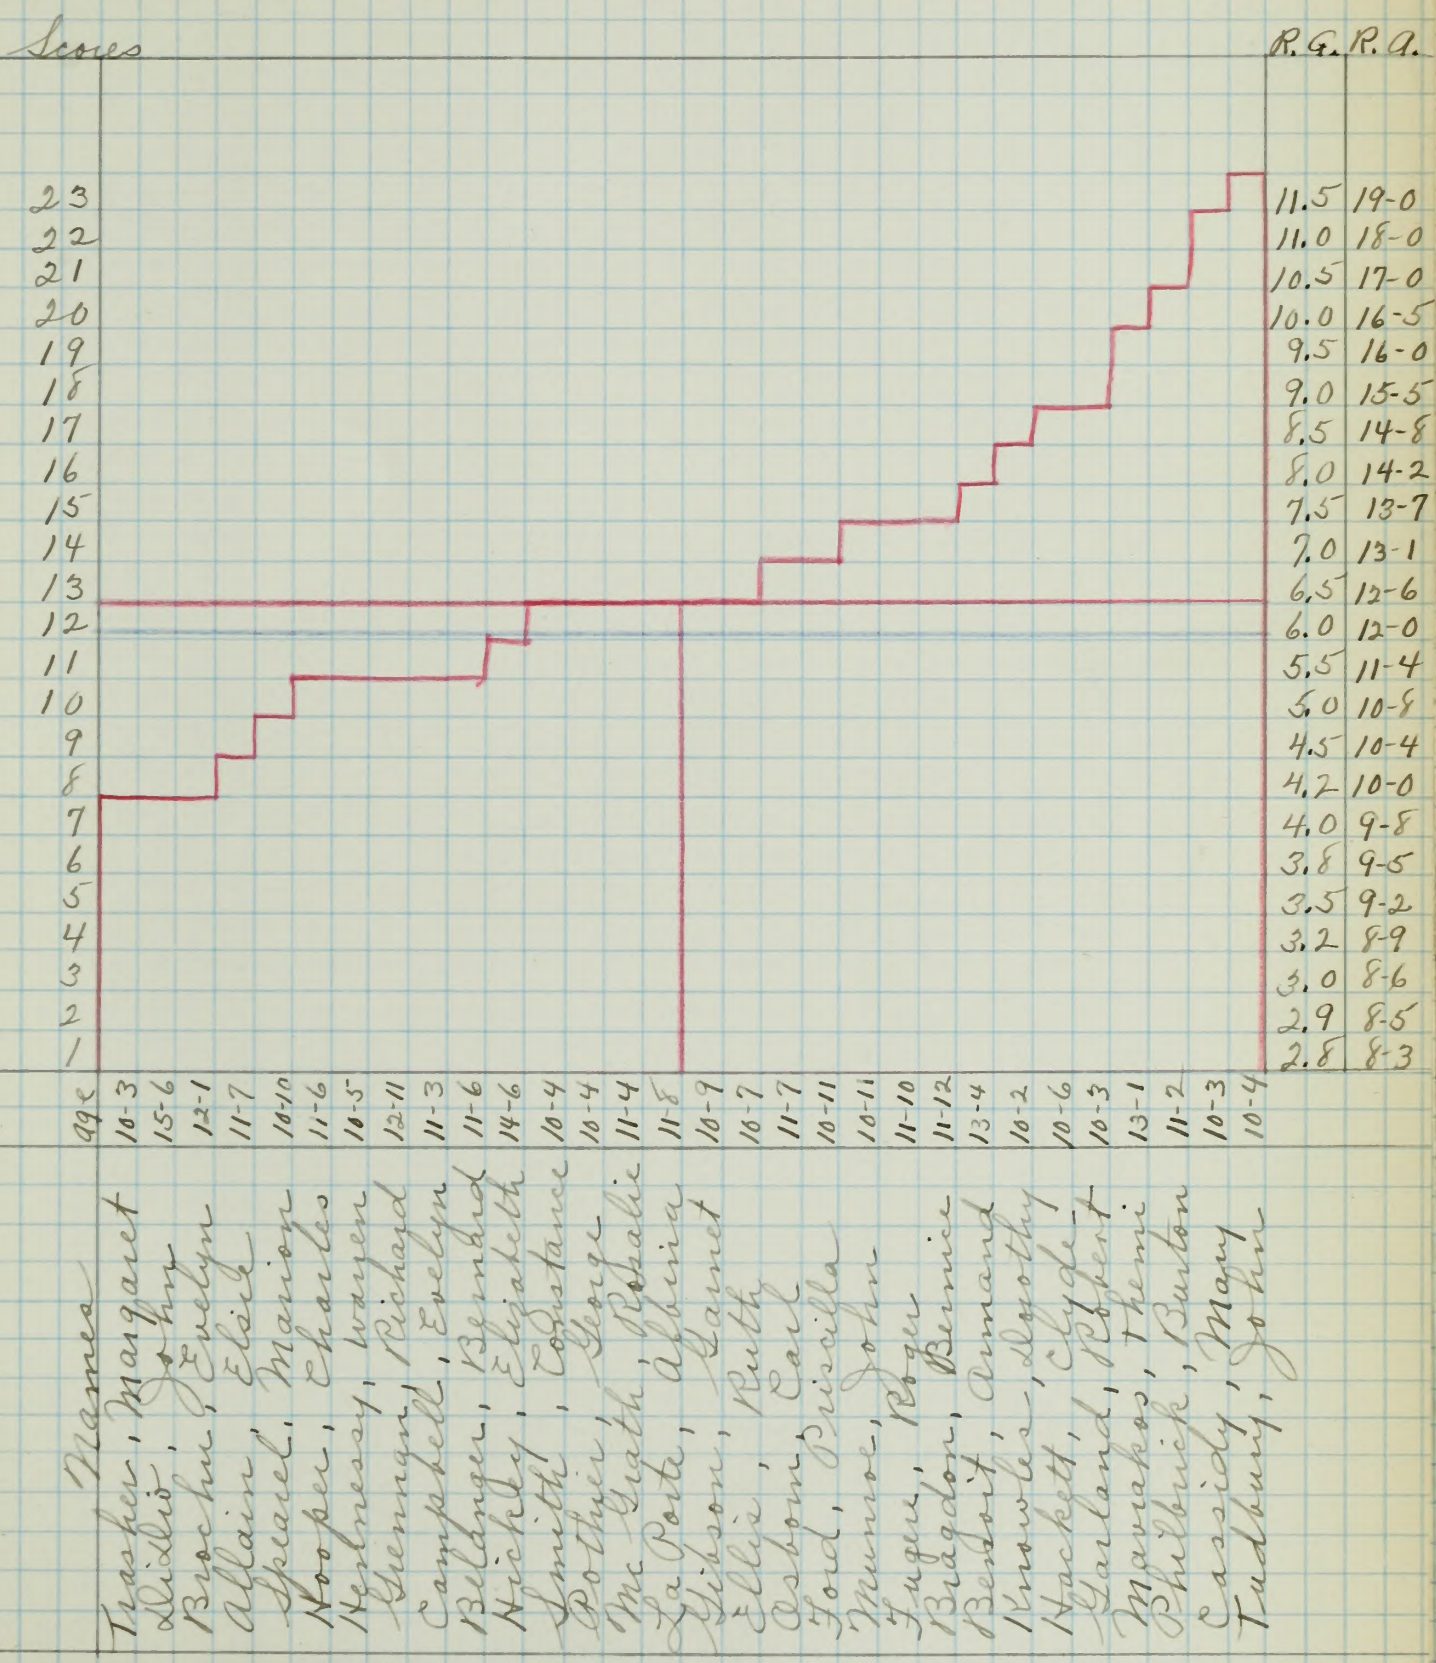 Scores R.G. R.A.
23 11.5 19-0
22 11.0 18-0
21 10.5 17-0
20 10.0 16-5
19 9.5 16-0
18 9.0 15-5
17 8.5 14-8
16 8.0 14-2
15 7.5 13-7
14 7.0 13-1
13 6.5 12-6
12 6.0 12-0
11 5.5 11-4
10 5.0 10-8
9 4.5 10-4
8 4.2 10-0
7 4.0 9-8
6 3.8 9-5
5 3.5 9-2
4 3.2 8-9
3 3.0 8-6
2 2.9 8-5
1 2.8 8-3
Names age
Trasher, Margaret 10-3
DiDio, John 15-6
Brochu, Evelyn 12-1
Allain, Elsie 11-7
Spearel, Marion 10-10
Hooper, Charles 11-6
Hennessy, Warren 10-5
Grennan, Richard 12-11
Campbell, Evelyn 11-3
Belanger, Bernard 11-6
Hickey, Elizabeth 14-6
Smith, Constance 10-4
Pothier, George 10-4
Mc Grath, Rosalie 11-4
La Porte, Albina 11-8
Gibson, Garnet 10-9
Ellis, Ruth 10-7
Osborn, Carl 11-7
Ford, Priscilla 10-11
Munroe, John 10-11
Fugere, Roger 11-10
Bragdon, Bernice 11-12
Benoit, Armand 13-4
Knowles, Dorothy 10-2
Hackett, Clyde 10-6
Garland, Robert 10-3
Mavrakos, Themi 13-1
Philbrick, Burton 11-2
Cassidy, Mary 10-3
Tudbury, John 10-4